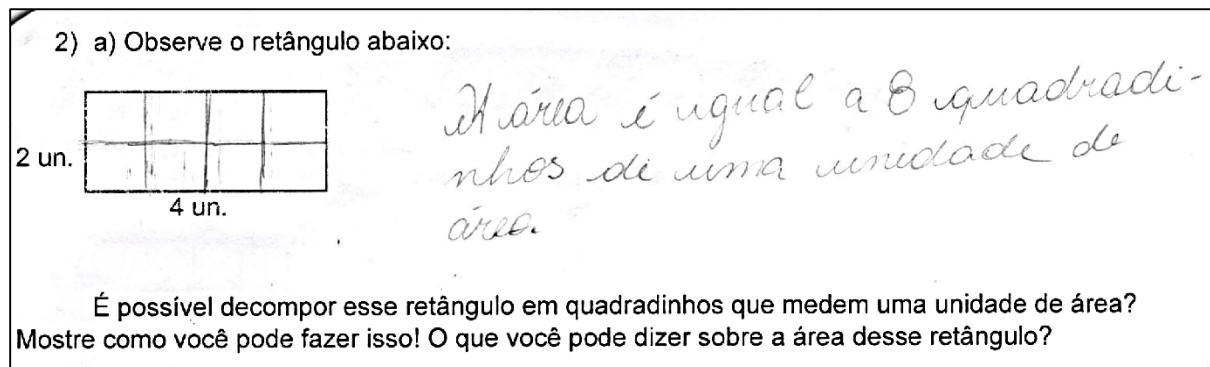 2) a) Observe o retângulo abaixo:
A área é igual a 8 quadradi-
nhos de uma unidade de
área.
2 un.
4 un.
É possível decompor esse retângulo em quadradinhos que medem uma unidade de área?
Mostre como você pode fazer isso! O que você pode dizer sobre a área desse retângulo?